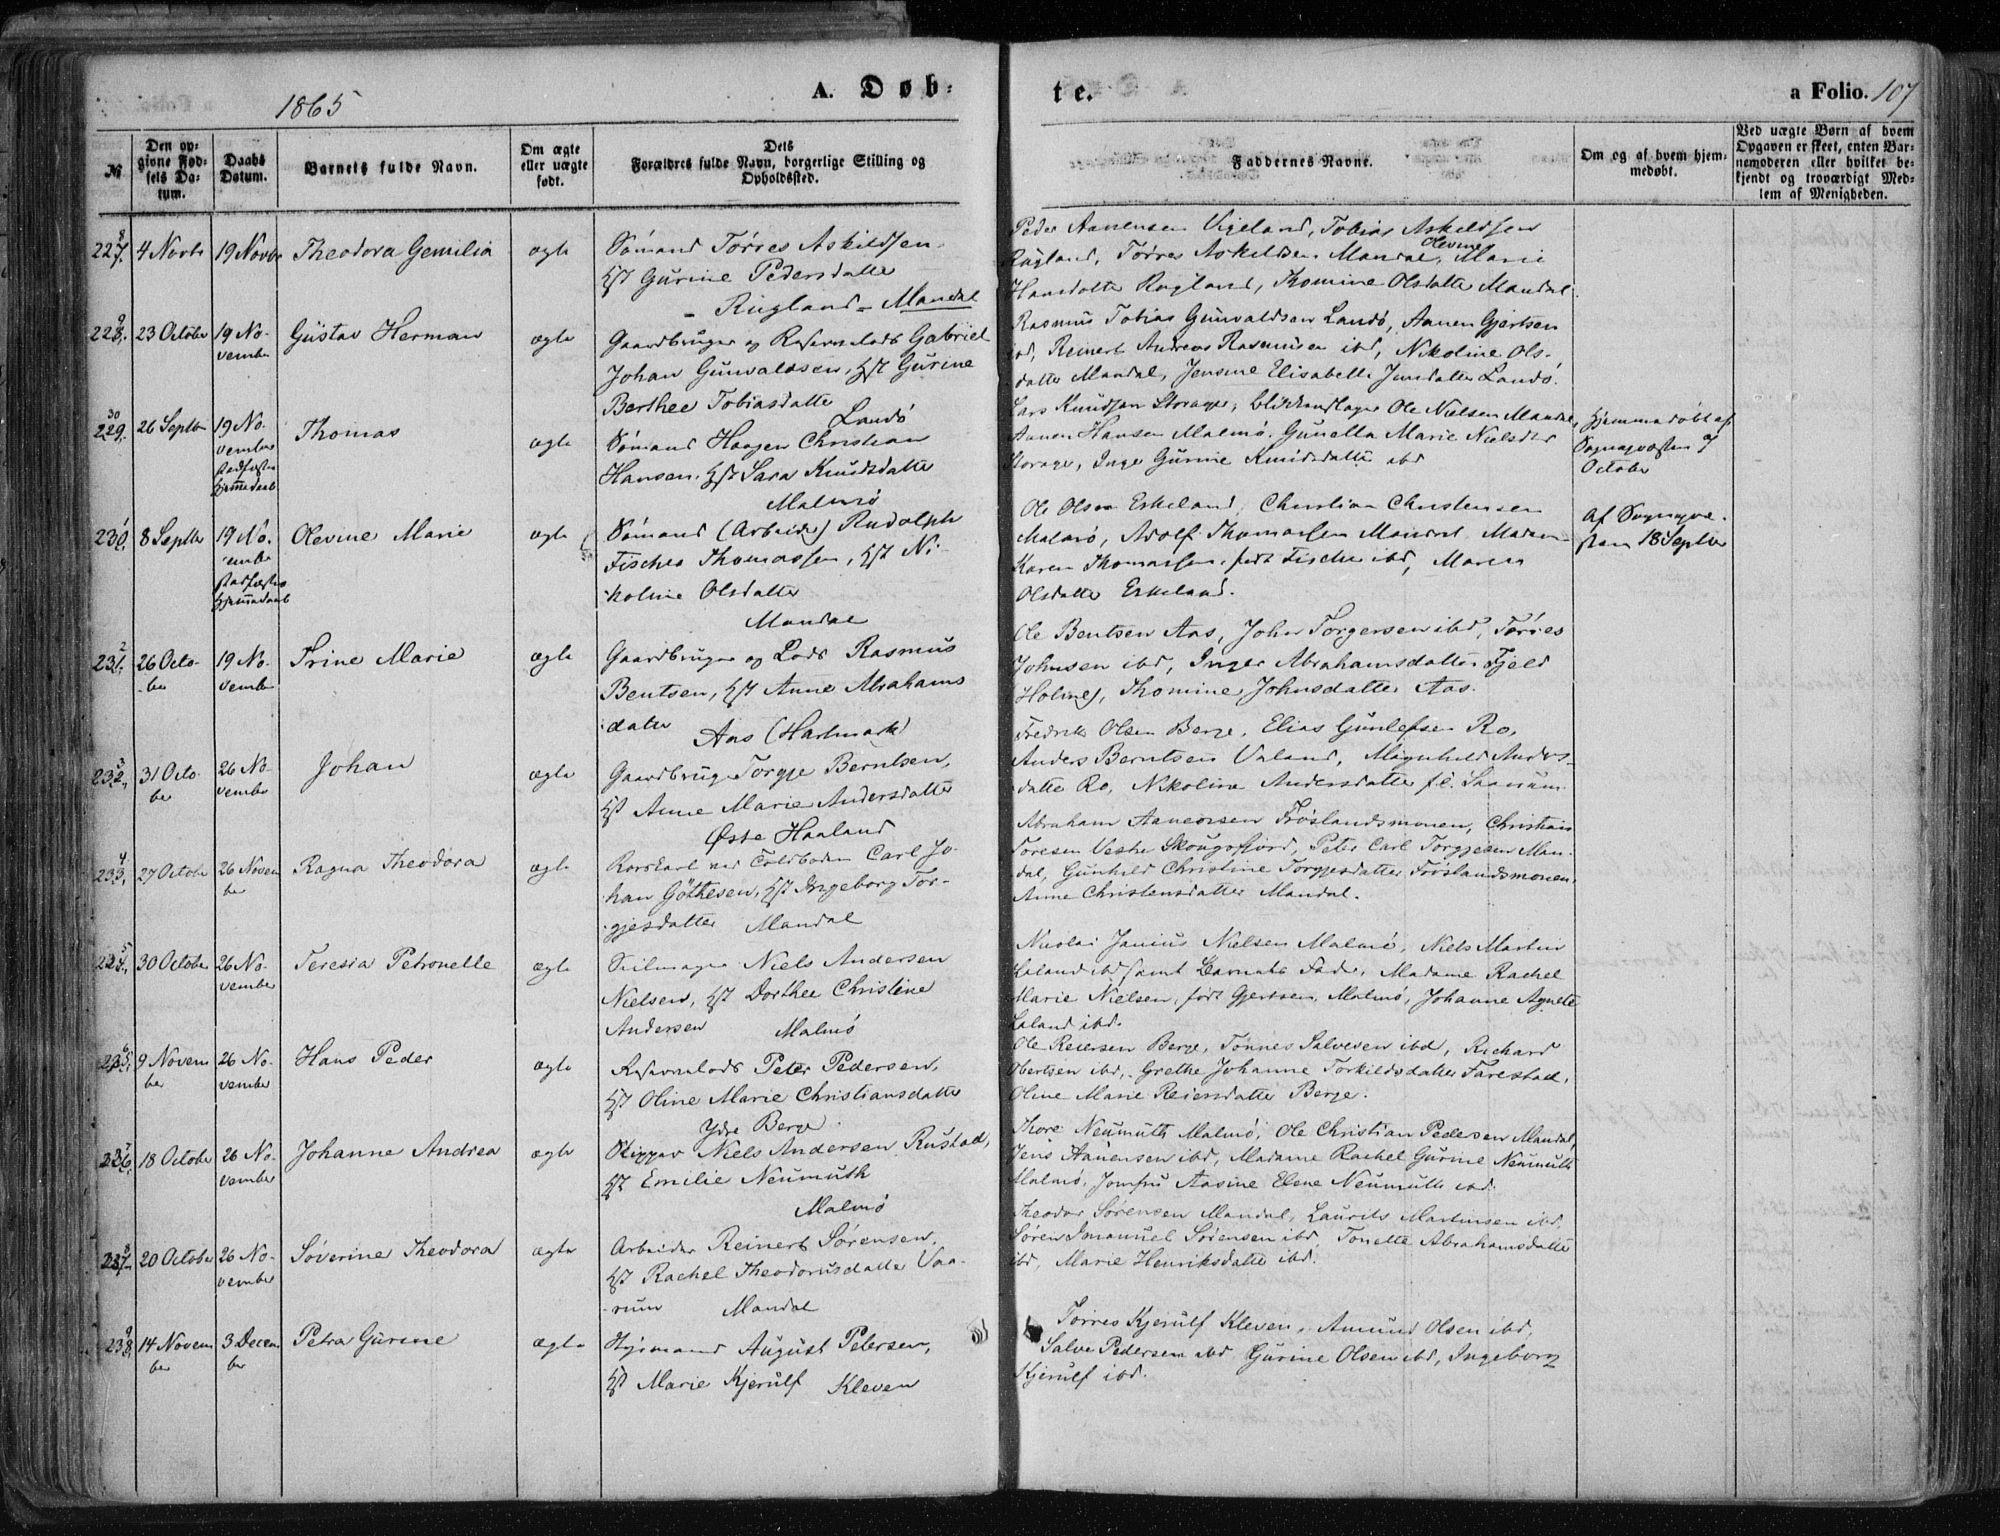 1865
A. Døb-
te.
a Folio. 107
№
Den opgivne Fødsels Datum.
Daabs Datum.
Barnets fulde Navn.
Om ægte eller uægte født.
Dets Forældres fulde Navn, borgerlige Stilling og Opholdssted.
Faddernes Navne.
Om og af hvem hjemmedøbt.
Ved uægte Børn af hvem Opgaven er skeet, enten Barnemoderen eller hvilket bekjendt og troværdigt Medlem af Menigheden.
8
227. 4 Novbr 19 Novbr Theodora Gemilia ægte
Sømand Tørres Askildsen
HH Gurine Pedersdatter
- Rugland - Mandal
Peder Aanensen Vigeland, Tobias Askildsen
Rugland, Tørres Askildsen Mandal, Olevine Marie
Hansdatter Rugland, Thomine Olsdatter Mandal.
9
228. 23 October 19 November Gustav Herman ægte
Gaardbruger og Reservelods Gabriel
Johan Gunvaldsen, HH Gurine
Berthee Tobiasdatter
Landø
Rasmus Tobias Gunvaldsen Landø, Aanen Gjertsen
ibd, Reinert Andreas Rasmusen ibd, Nikoline Ols-
datter Mandal, Jensine Elisabeth Jensdatter Landø.
30
229. 26 Septbr 19 November stadfæstet hjemmedaab Thomas ægte
Sømand Haagen Christian
Hansen, HH Sara Knudsdatter
Malmø
Lars Knudsen Storager, Ole Nielsen Mandal,
Aanen Hansen Malmø, Gunella Marie Nielsdtr
Storage, Inge Gurine Knudsdatter ibd
Hjemmedøbt af
Sognepræsten 7
October
1
230. 8 Septbr 19 November stadfæstet hjemmedaab Olevine Marie ægte
Sømand (Arbeider) Rudolph
Fischer Thomassen, HH Ni-
koline Olsdatter
Mandal
Ole Olsen Eskeland, Christian Christensen
Malmø, Adolf Thomassen Mandal, Madam
Karen Thomassen, født Fischer ibd, Maren
Olsdatter Eskeland.
Af Sognepræ-
sten 18 Septbr
2
231. 26 October 19 November Trine Marie ægte
Gaardbruger og Lods Rasmus
Bentsen, HH Anne Abrahams
datter
Aas (Hartmark)
Ole Bentsen Aas, John Torgersen ibd, Tørres
Johnsen ibd, Inger Abrahamsdatter Fjeld
Holme), Thomine Johnsdatter Aas.
3
232. 31 October 26 November Johan ægte
Gaardbruger Torgje Berntsen,
HH Anne Marie Andersdatter
Østre Haaland
Fredrik Olsen Berge, Elias Gunlefsen Ro,
Anders Berntsen Valand, Magnhild Anders-
datter Ro, Nikoline Andersdatter
4
233. 27 October 26 November Ragna Theodora ægte
Rorskarl ved Toldboden Carl Jo-
han Göthesen, HH Ingeborg Tor-
gjesdatter Mandal
Abraham Aanensen Frøslandsmonen, Christian
Toresen Vestre Skougsfjord, Peter Carl Torgjesen Man-
dal, Gunhild Christine Torgjesdatter Frøslandsmonen,
Anne Christensdatter Mandal.
5
234. 30 October 26 November Teresia Petronelle ægte
Seilmager Niels Andersen
Nielsen, HH Dorthee Christine
Andersen Malmø
Nicolai Janius Nielsen Malmø, Niels Martin
Laland ibd samt Barnets Fader, Madame Rachel
Marie Nielsen, født Gjertsen, Malmø, Johanne Agnete
Laland ibd.
6
235. 9 November 26 November Hans Peder ægte
Reservelods Peter Pedersen,
HH Oline Marie Christiansdatter
Ydre Berge
Ole Reiersen Berge, Tønnes Salvesen ibd, Richard
Obertsen ibd, Grethe Johanne Torkildsdatter Farestad,
Oline Marie Reiersdatter Berge.
7
236. 18 October 26 November Johanne Andrea ægte
Skipper Niels Andersen Rustad,
HH Emilie Neumuth
Malmø
Thore Neumuth Malmø, Ole Christian Pedersen Mandal,
Jens Aanensen ibd, Madame Rachel Gurine Neumuth
Malmø, Jomfru Aasine Elene Neumuth ibd.
8
237. 20 October 26 November Søverine Theodora ægte
Arbeider Reinert Sørensen,
HH Rachel Theodorusdatter Vaa-
rum Mandal
Theodor Sørensen Mandal, Laurits Martinsen ibd,
Søren Imanuel Sørensen ibd, Tonette Abrahamsdatter
ibd, Marie Henriksdatter ibd.
9
238. 14 November 3 December Petra Gurine ægte
August Petersen,
HH Marie Kjerulf Kleven
Tørres Kjerulf Kleven, Amund Olsen ibd,
Salve Pedersen ibd, Gurine Olsen ibd, Ingeborg
Kjerulf ibd.